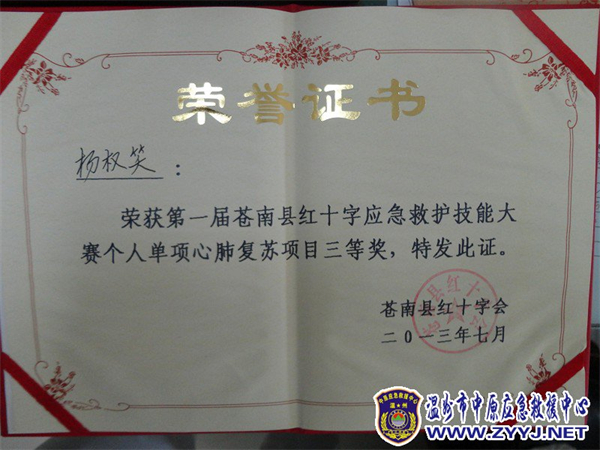 荣誉证书
杨权笑：
荣获第一届苍南县红十字应急救护技能大
赛个人单项心肺复苏项目三等奖，特发此证。
苍南县红十字会
二0一三年七月
温州市中原应急救援中心
WWW.ZYYJ.NET